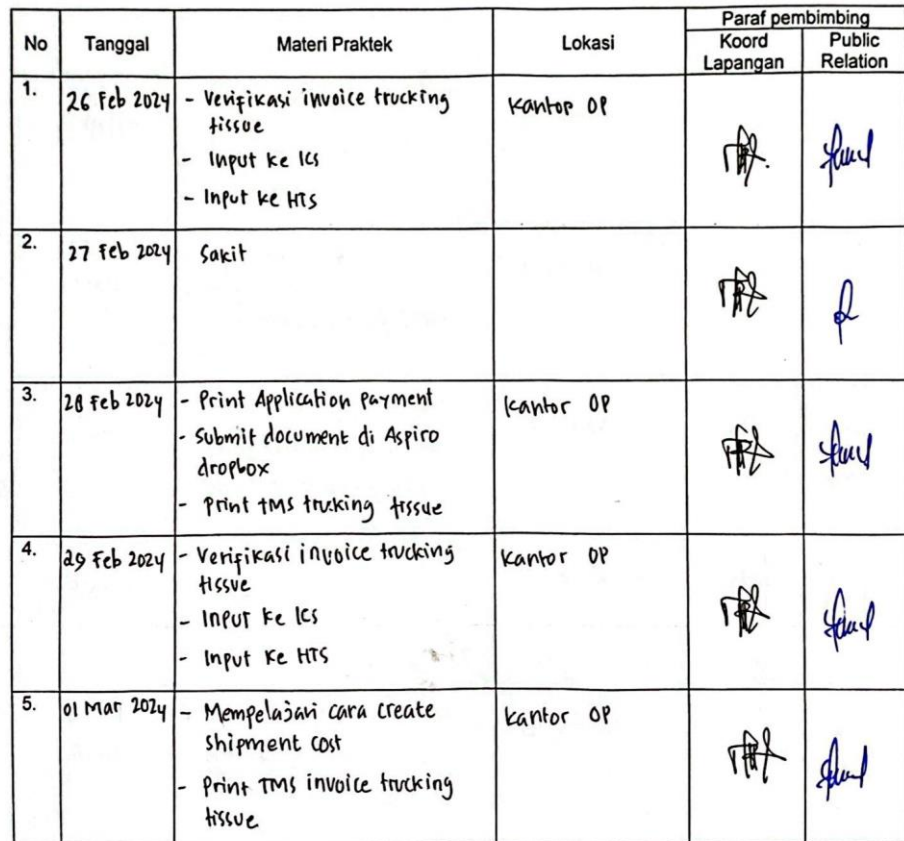 No Tanggal Materi Praktek Lokasi Paraf pembimbing
Koord Lapangan Public Relation
1. 26 Feb 2024 - Verifikasi invoice trucking Kantor OP
tissue
- Input ke ICS
- Input ke HTS
2. 27 Feb 2024 Sakit
3. 28 Feb 2024 - Print Application payment Kantor OP
- Submit document di Aspiro
dropbox
- Print TMS trucking tissue
4. 29 Feb 2024 - Verifikasi invoice trucking Kantor OP
tissue
- Input ke ICS
- Input ke HTS
5. 01 Mar 2024 - Mempelajari cara create Kantor OP
Shipment cost
- Print TMS invoice trucking
tissue